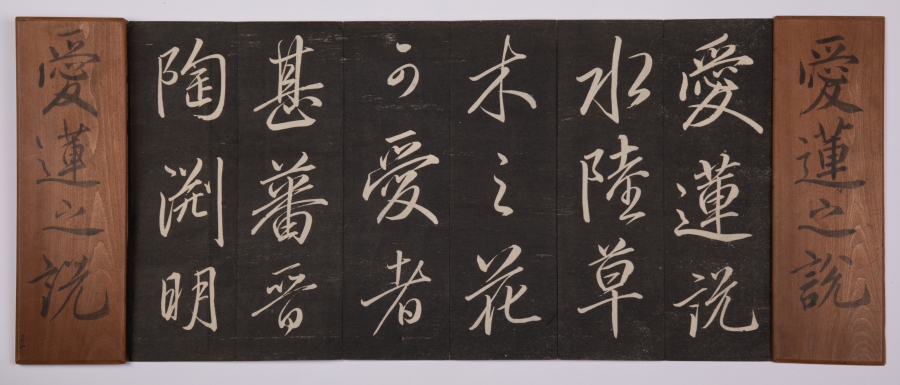 愛蓮之説
愛蓮説
水陸草
木之花
可愛者
甚蕃晋
陶淵明
愛蓮之説